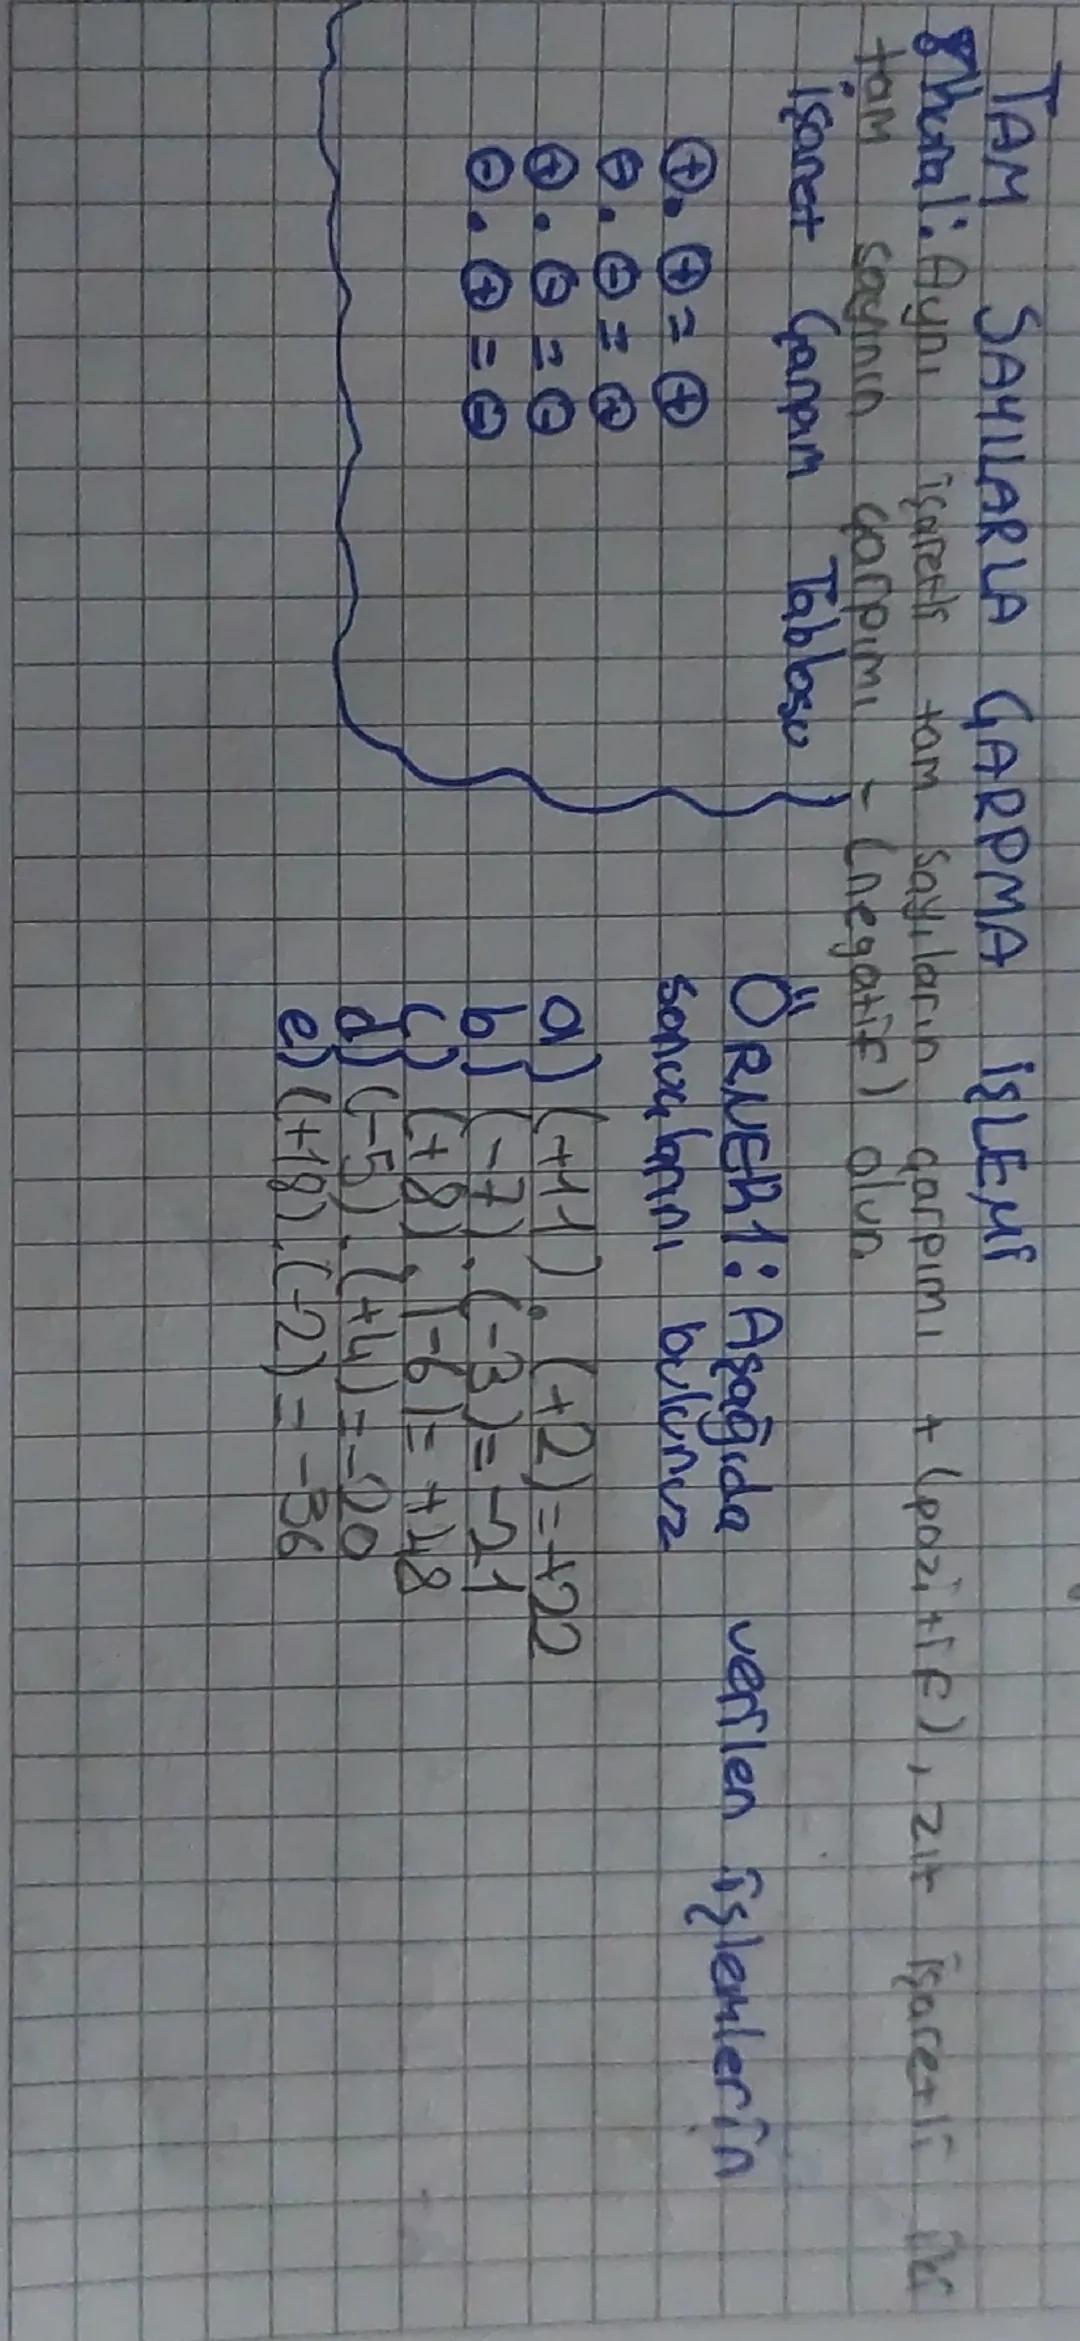 TAM SAYILARLA ÇARPMA İŞLEMİ
Kural: Aynı işaretli tam sayıların çarpımı + (pozitif), zıt işaretli iki
tam sayının çarpımı - (negatif) olur
İşaret Çarpım Tablosu
⊕ . ⊕ = ⊕
⊖ . ⊖ = ⊕
⊕ . ⊖ = ⊖
⊖ . ⊕ = ⊖
ÖRNEK1: Aşağıda verilen işlemlerin
sonuçlarını bulunuz
a) (+11) . (+2) = +22
b) (-7) . (-3) = -21
c) (+8) . (-6) = +48
d) (-5) . (+4) = -20
e) (+18) . (-2) = -36